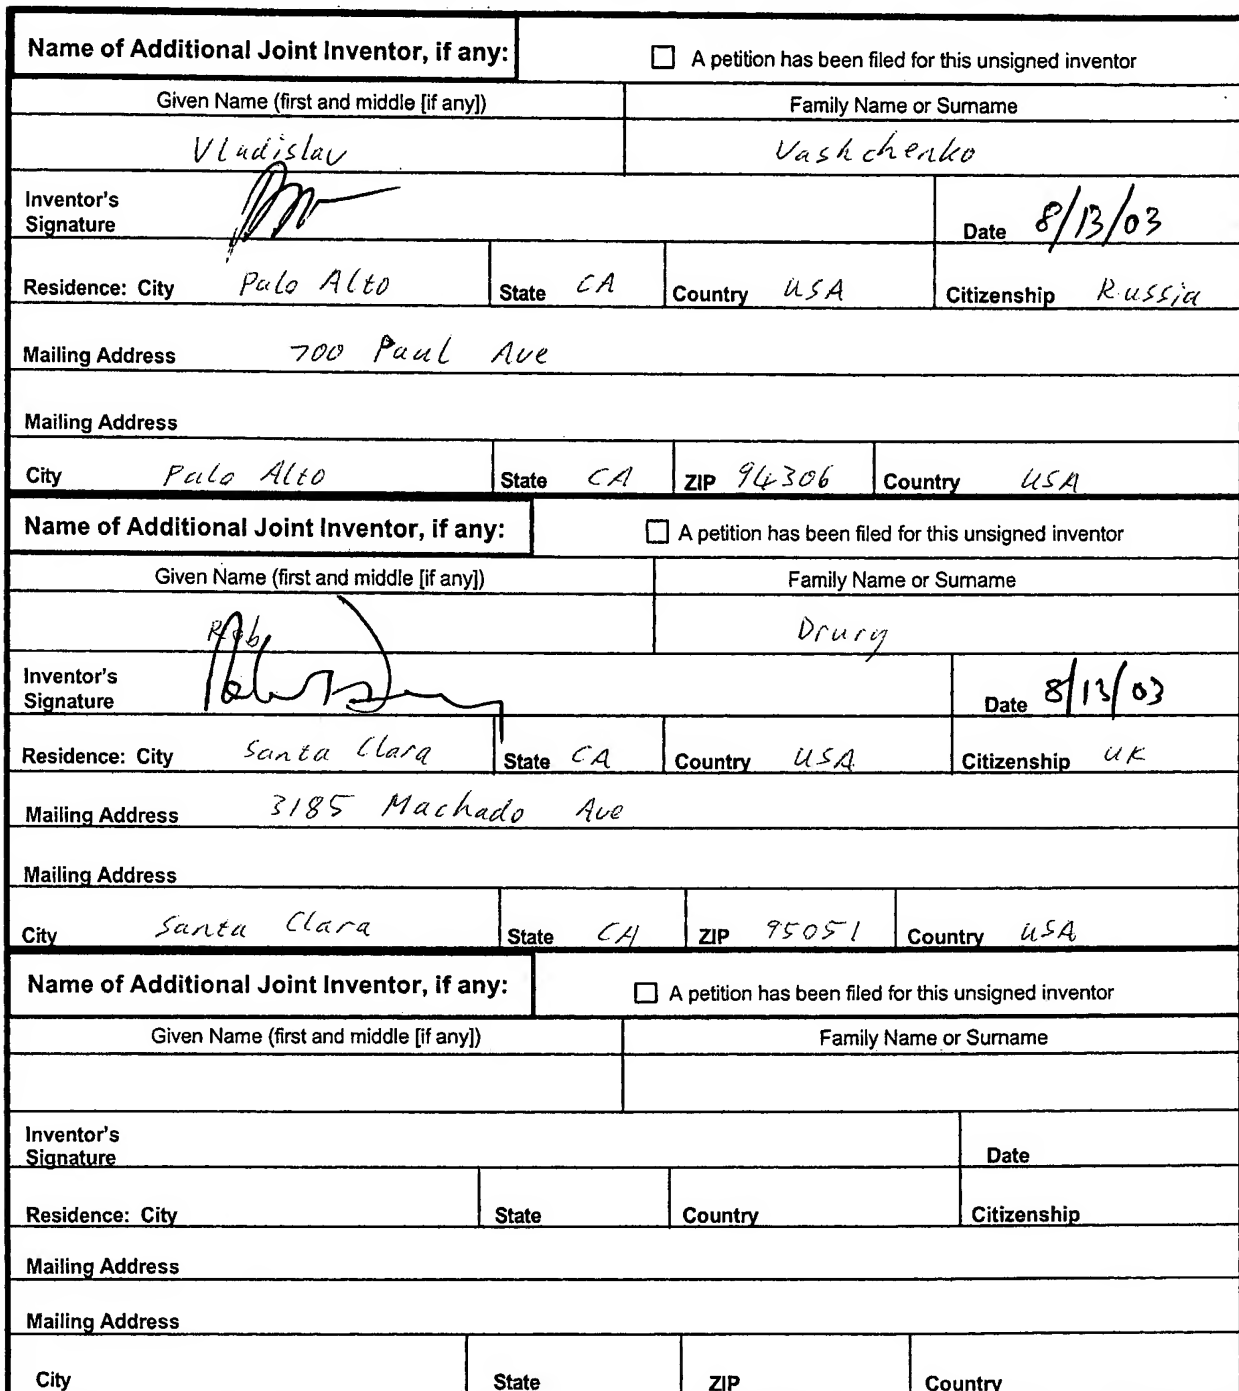 Name of Additional Joint Inventor, if any: ☐ A petition has been filed for this unsigned inventor
Given Name (first and middle [if any]) Family Name or Surname
Vladislav Vashchenko
Inventor's
Signature Date 8/13/03
Residence: City Palo Alto State CA Country USA Citizenship Russia
Mailing Address 700 Paul Ave
Mailing Address
City Palo Alto State CA ZIP 94306 Country USA
Name of Additional Joint Inventor, if any: ☐ A petition has been filed for this unsigned inventor
Given Name (first and middle [if any]) Family Name or Surname
Rob Drury
Inventor's
Signature Date 8/13/03
Residence: City Santa Clara State CA Country USA Citizenship UK
Mailing Address 3185 Machado Ave
Mailing Address
City Santa Clara State CA ZIP 95051 Country USA
Name of Additional Joint Inventor, if any: ☐ A petition has been filed for this unsigned inventor
Given Name (first and middle [if any]) Family Name or Surname
Inventor's
Signature Date
Residence: City State Country Citizenship
Mailing Address
Mailing Address
City State ZIP Country